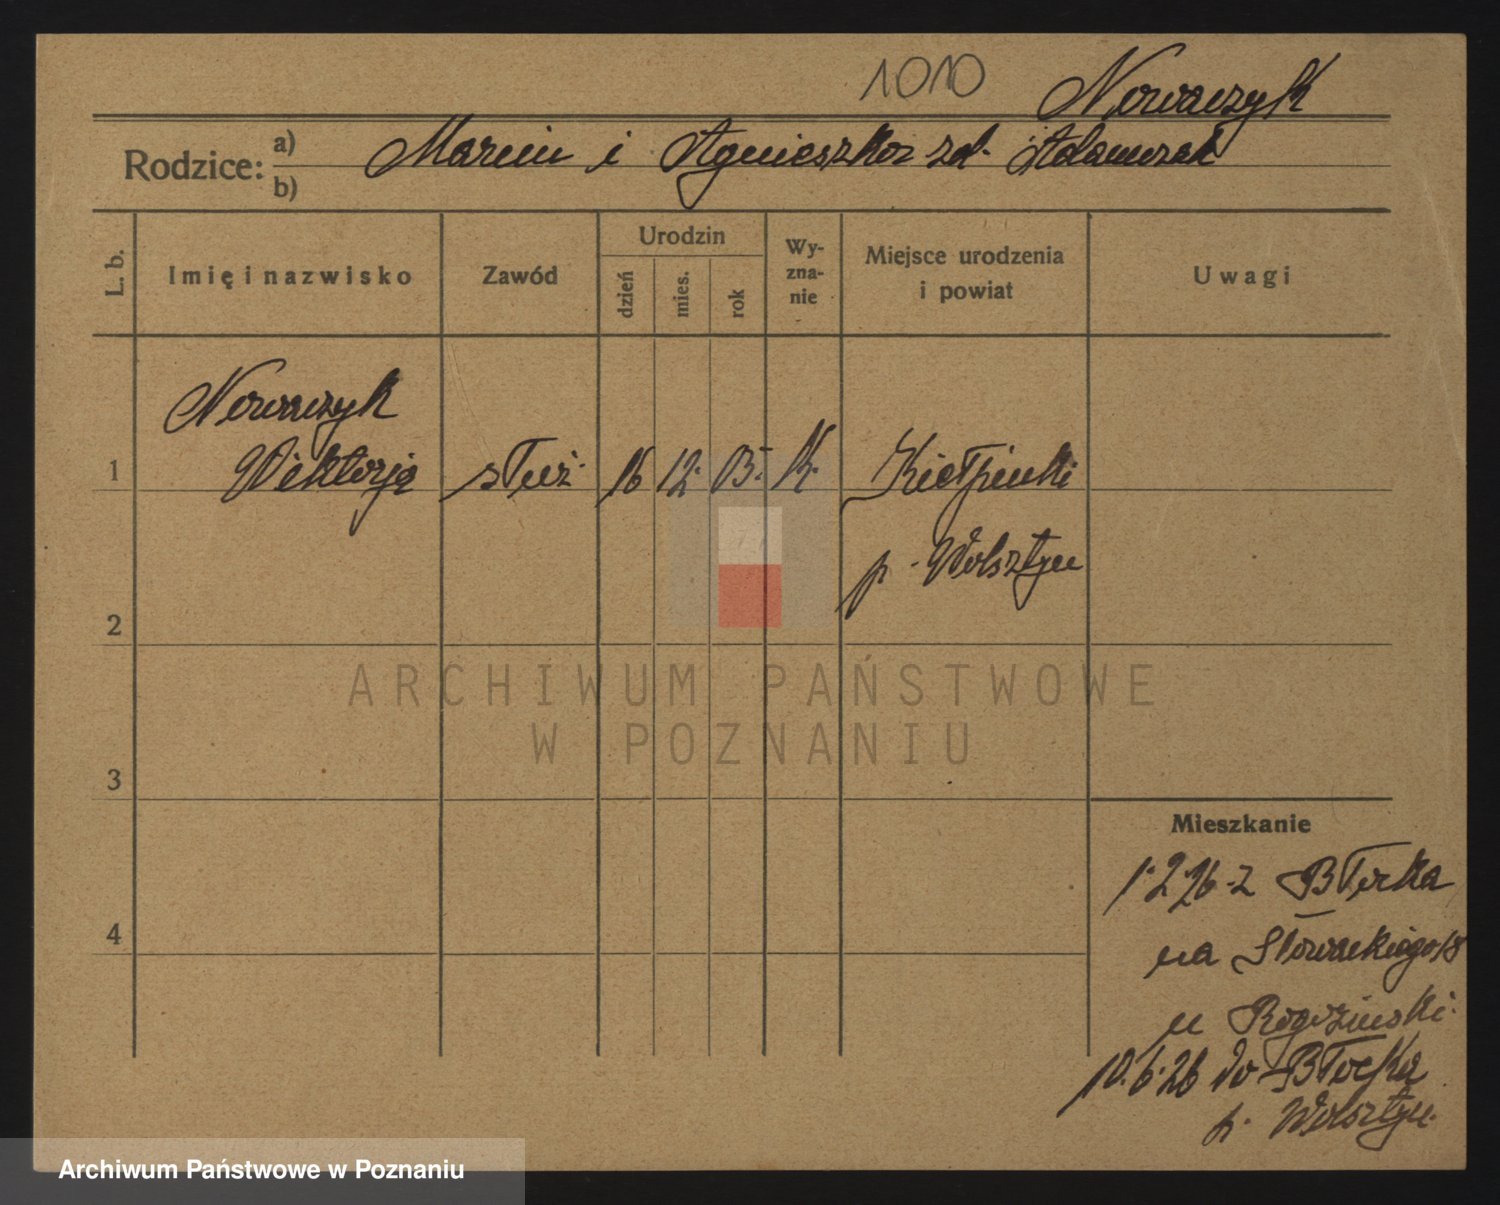 1010
Nowaczyk
Rodzice: a) Marcin i Agnieszka zd. Adamczak
b)
L. b.
Imię i nazwisko
Zawód
Urodzin
dzień
mies.
rok
Wy-
zna-
nie
Miejsce urodzenia
i powiat
Uwagi
Nowaczyk
1 Wiktorja służ. 16 12. 05. K. Kiełpinki
p. Wolsztyn
2
ARCHIWUM PAŃSTWOWE
W POZNANIU
3
Mieszkanie
1.2 26 z Błocka
4
na Słowackiego 18
u Rogoziński.
10.6.26 do Błocka
p. Wolsztyn.
Archiwum Państwowe w Poznaniu